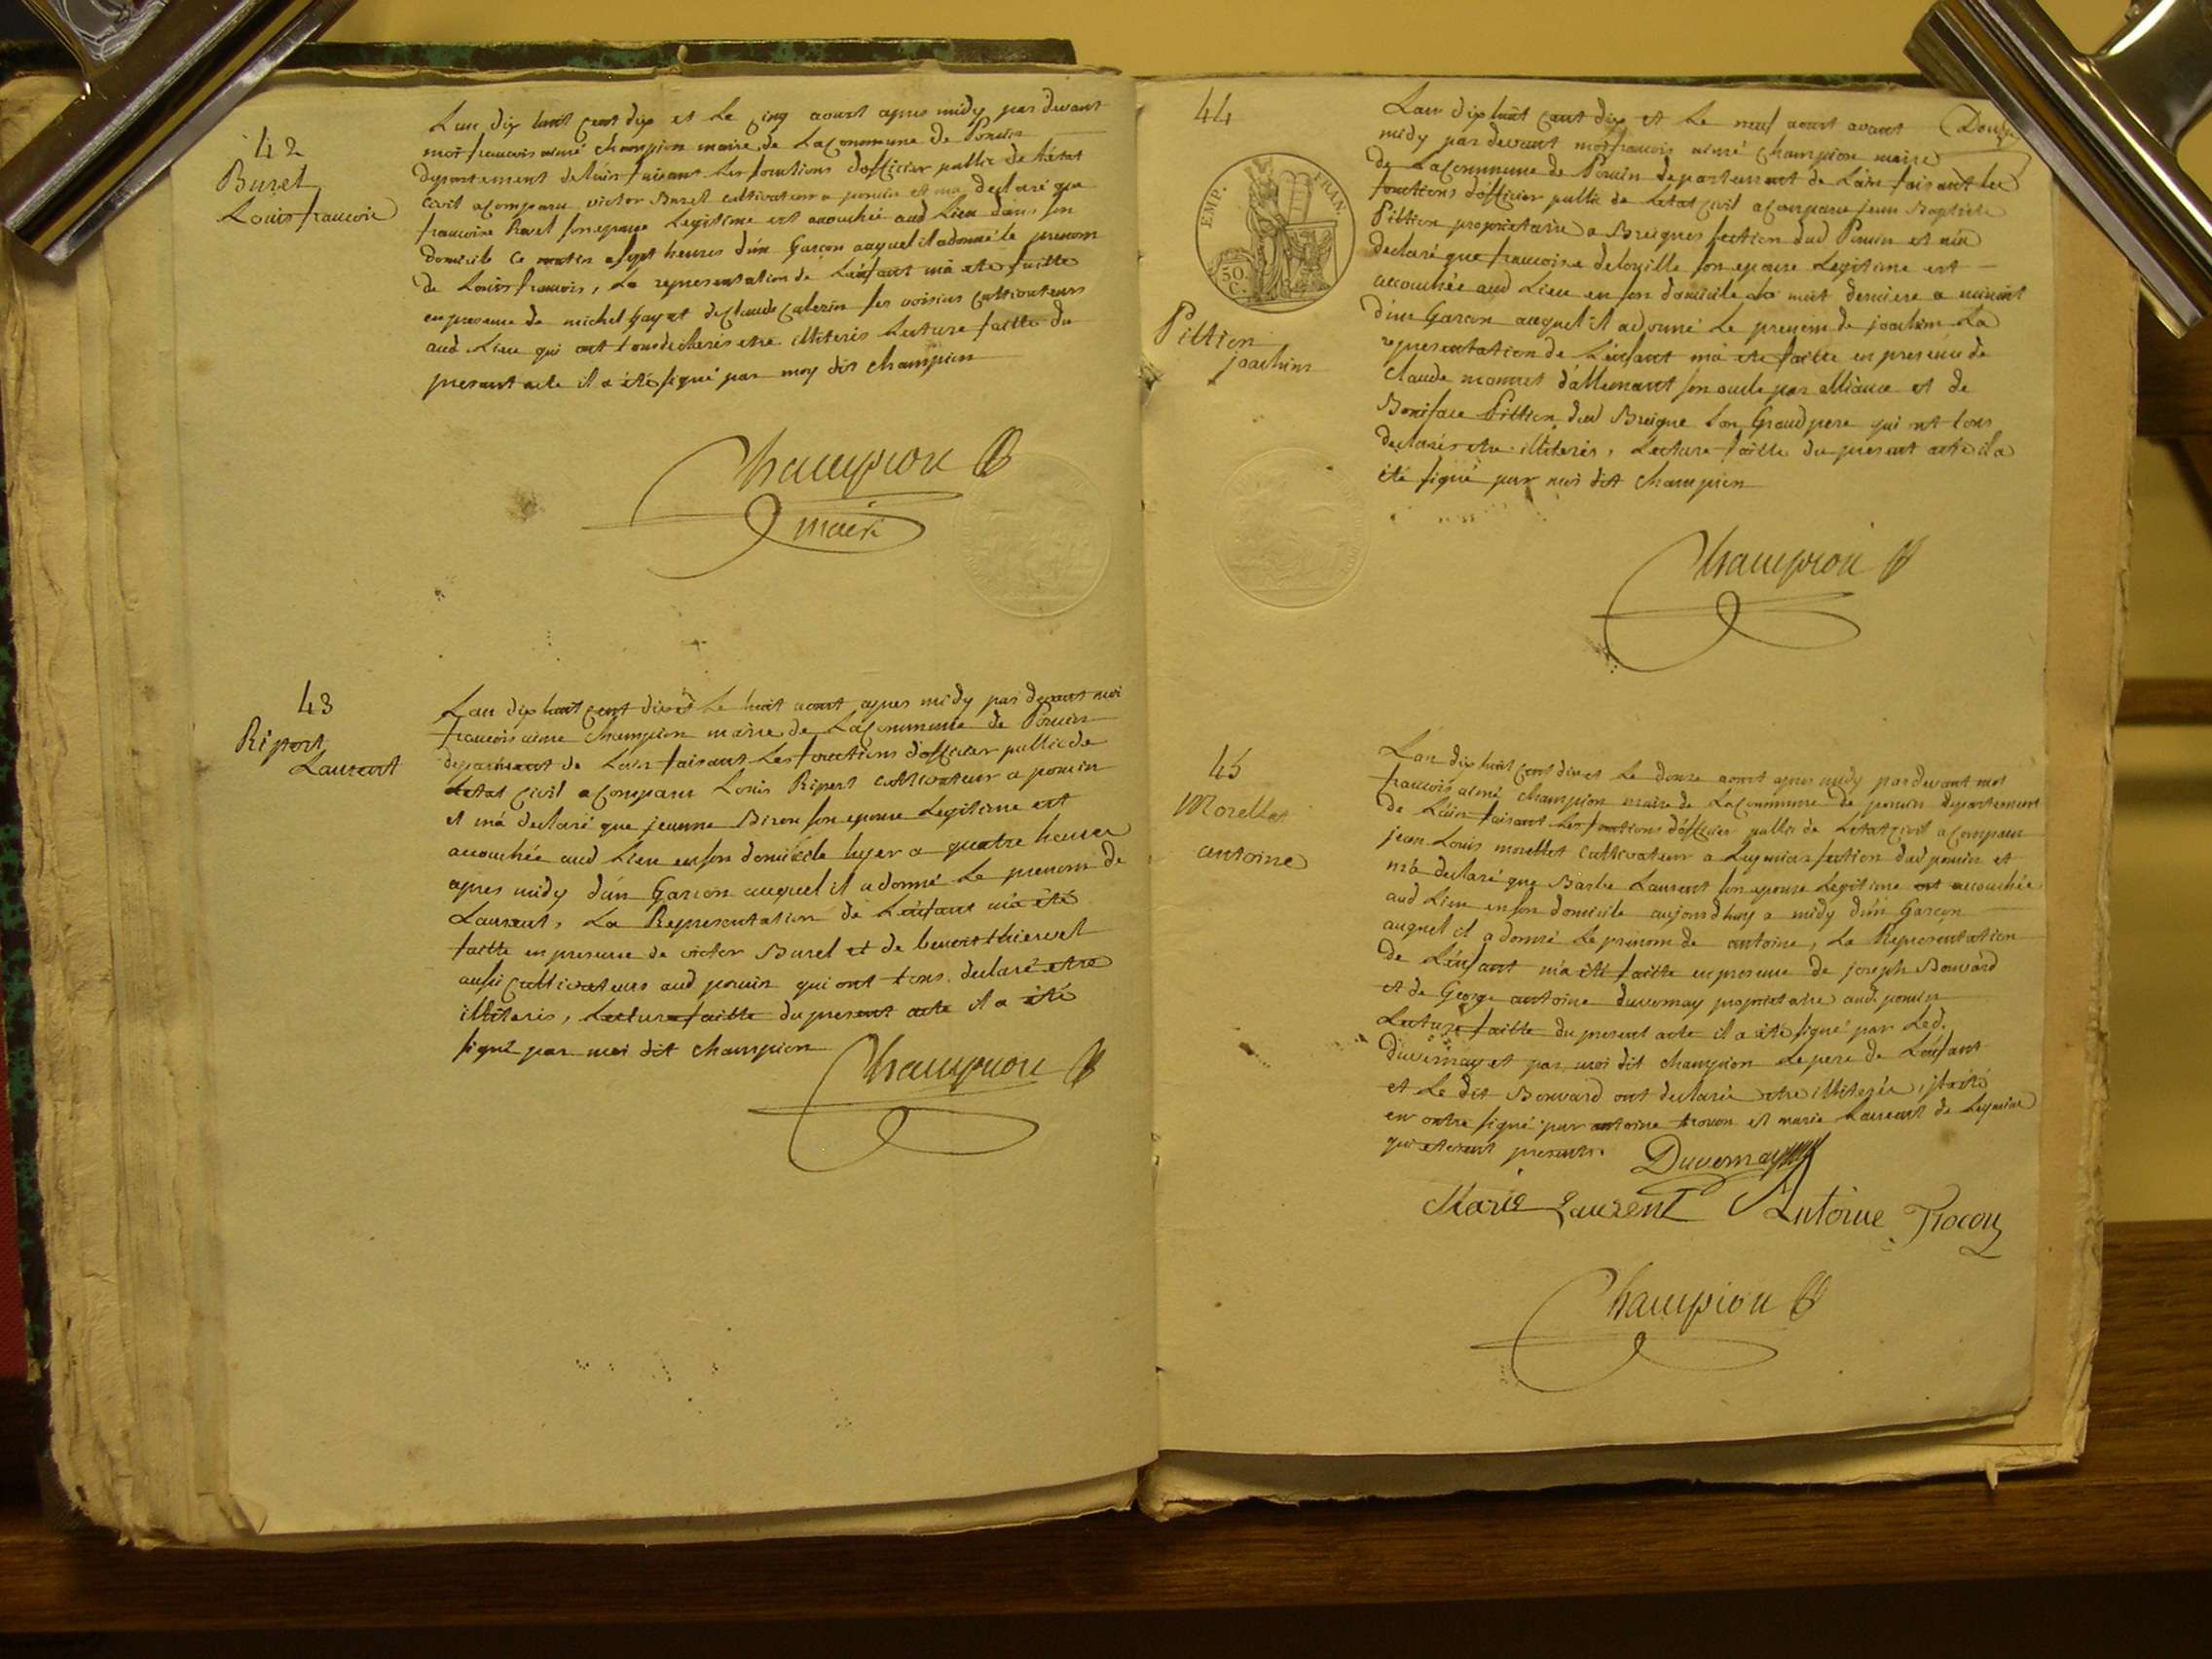 42
Buret
Louis francois
L'an dix huit cent dix et le cinq aoust apres midy par devant
moi francois aimé champion maire de La Commune de Poncin
departement de l'ain faisant les fonctions d'officier public de l'état
civil a comparu victor Buret cultivateur a poncin et m'a declaré que
francoise Ravet son epouse Legitime est accouchée aud Lieu dans son
domicile ce matin a sept heures d'un Garcon auquel il a donné le prenom
de Louis francois, La representation de L'enfant m'a ete faitte
en presence de michel Gay et de Claude Calezin ses voisins cultivateurs
aud Lieu qui ont tous declarés etre illiterés Lecture faitte du
present acte il a été signé par moy dit champion
Champion
maire
43
Ripert
Laurent
L'an dix huit cent dix et Le huit aoust apres midy par devant moi
francois aimé Champion maire de La Commune de Poncin
departement de Lain faisant Les fonctions d'officier public de
Letat Civil a Comparu Louis Ripert Cultivateur a poncin
et m'a declaré que jeanne Biron son epouse Legitime est
accouchée aud Lieu en son domicile hyer a quatre heures
apres midy d'un Garcon auquel il a donné Le prenom de
Laurent, La Representation de L'enfant m'a été
faitte en presence de victor Buret et de benoit thievet
aussi Cultivateurs aud poncin qui ont tous declaré etre
illiterés, Lecture faitte du present acte il a été
signé par moi dit champion
Champion
44
EMP. FRAN.
50 C.
Pittion
joachim
L'an dix huit cent dix et Le neuf aoust avant
midy par devant moi francois aimé Champion maire
de La Commune de Poncin departement de L'ain faisant les
fonctions d'officier public de Letat Civil a Comparu jean Baptiste
Pittion propriétaire a Breignes section dud Poncin et m'a
declaré que francoise delouille son epouse Legitime est
accouchée aud Lieu en son domicile La nuit derniere a minuit
d'un Garcon auquel il a donné Le prenom de joachim La
representation de L'enfant m'a ete faitte en presence de
Claude monnet d'allemant son oncle par alliance et de
Boniface Pittion dud Breigne son Grand pere qui ont tous
declarés etre illiterés, Lecture faitte du present acte il a
été signé par moi dit Champion
Champion
45
Morellet
antoine
L'an dix huit cent dix et Le douze aoust apres midy par devant moi
francois aimé Champion maire de La Commune de poncin departement
de L'ain faisant Les fonctions d'officier public de Letat Civil a Comparu
jean Louis morellet Cultivateur a Leymiat section dud poncin et
m'a declaré que Barbe Laurent son epouse Legitime est accouchée
aud Lieu en son domicile aujourd'huy a midy d'un Garcon
auquel il a donné Le prenom de antoine, La Representation
de L'enfant m'a été faitte en presence de joseph Bouvard
et de George antoine duvernay proprietaire aud. poncin
Lecture faitte du present acte il a été signé par Led.
Duvernay et par moi dit champion Le pere de L'enfant
et Le dit Bouvard ont declarés etre illiterés, il a été
en outre signé par antoine trocon et marie Laurent de Leymiat
qui etoient presents.
Duvernay
Marie Laurent Antoine Trocon
Champion